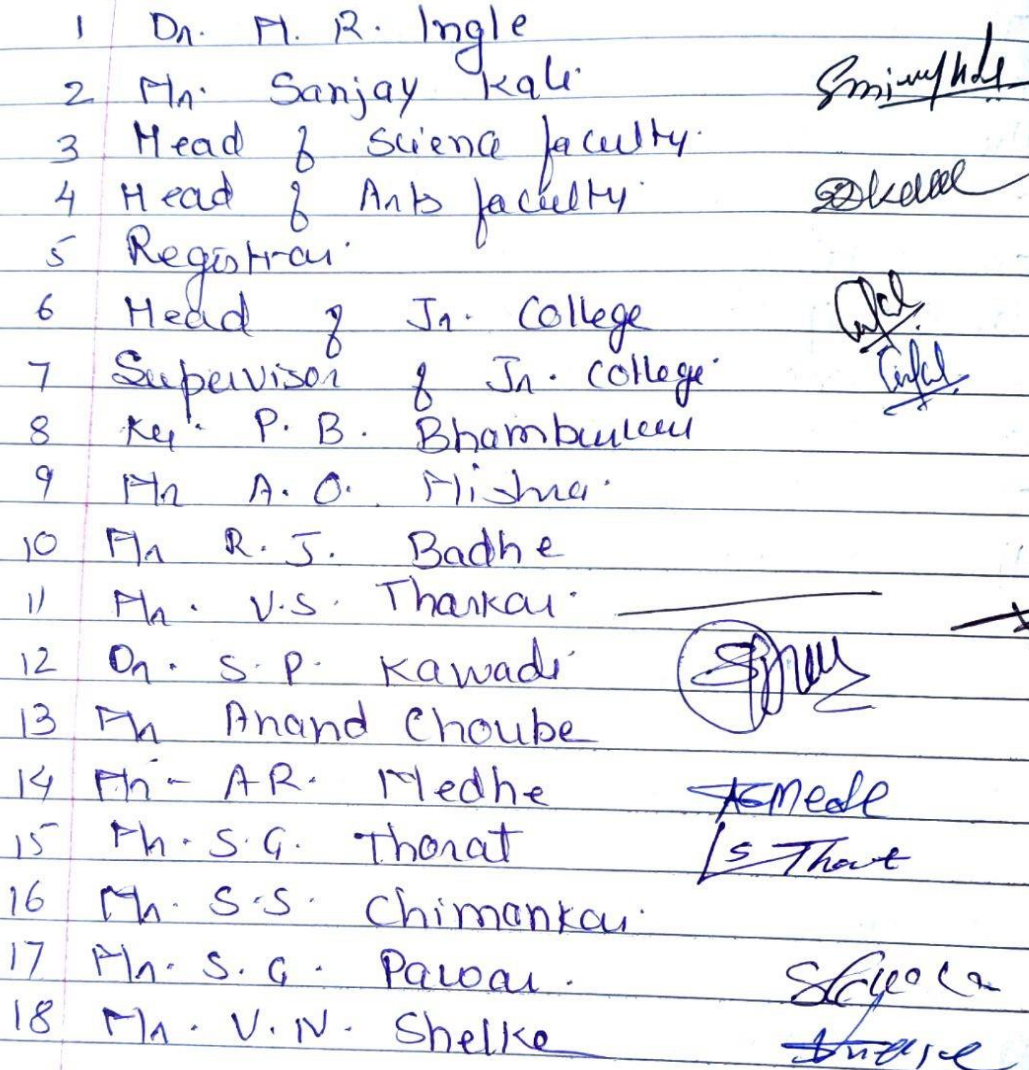 1 Dr. M. R. Ingle
2 Mr. Sanjay Kale
3 Head of Science faculty.
4 Head of Arts faculty
5 Registrar
6 Head of Jr. College
7 Supervisor of Jr. College
8 Ku. P. B.
9 Mr A. O. Mishra.
10 Mr R. J. Badhe
11 Mr. V.S. Tharkar
12 Dr. S. P. Kawade
13 Mr Anand Choube
14 Mr - A R. Medhe
15 Mr. S. G. Thorat
16 Mr. S.S. Chimankar
17 Mr. S. G. Pawar.
18 Mr. V. N. Shelke